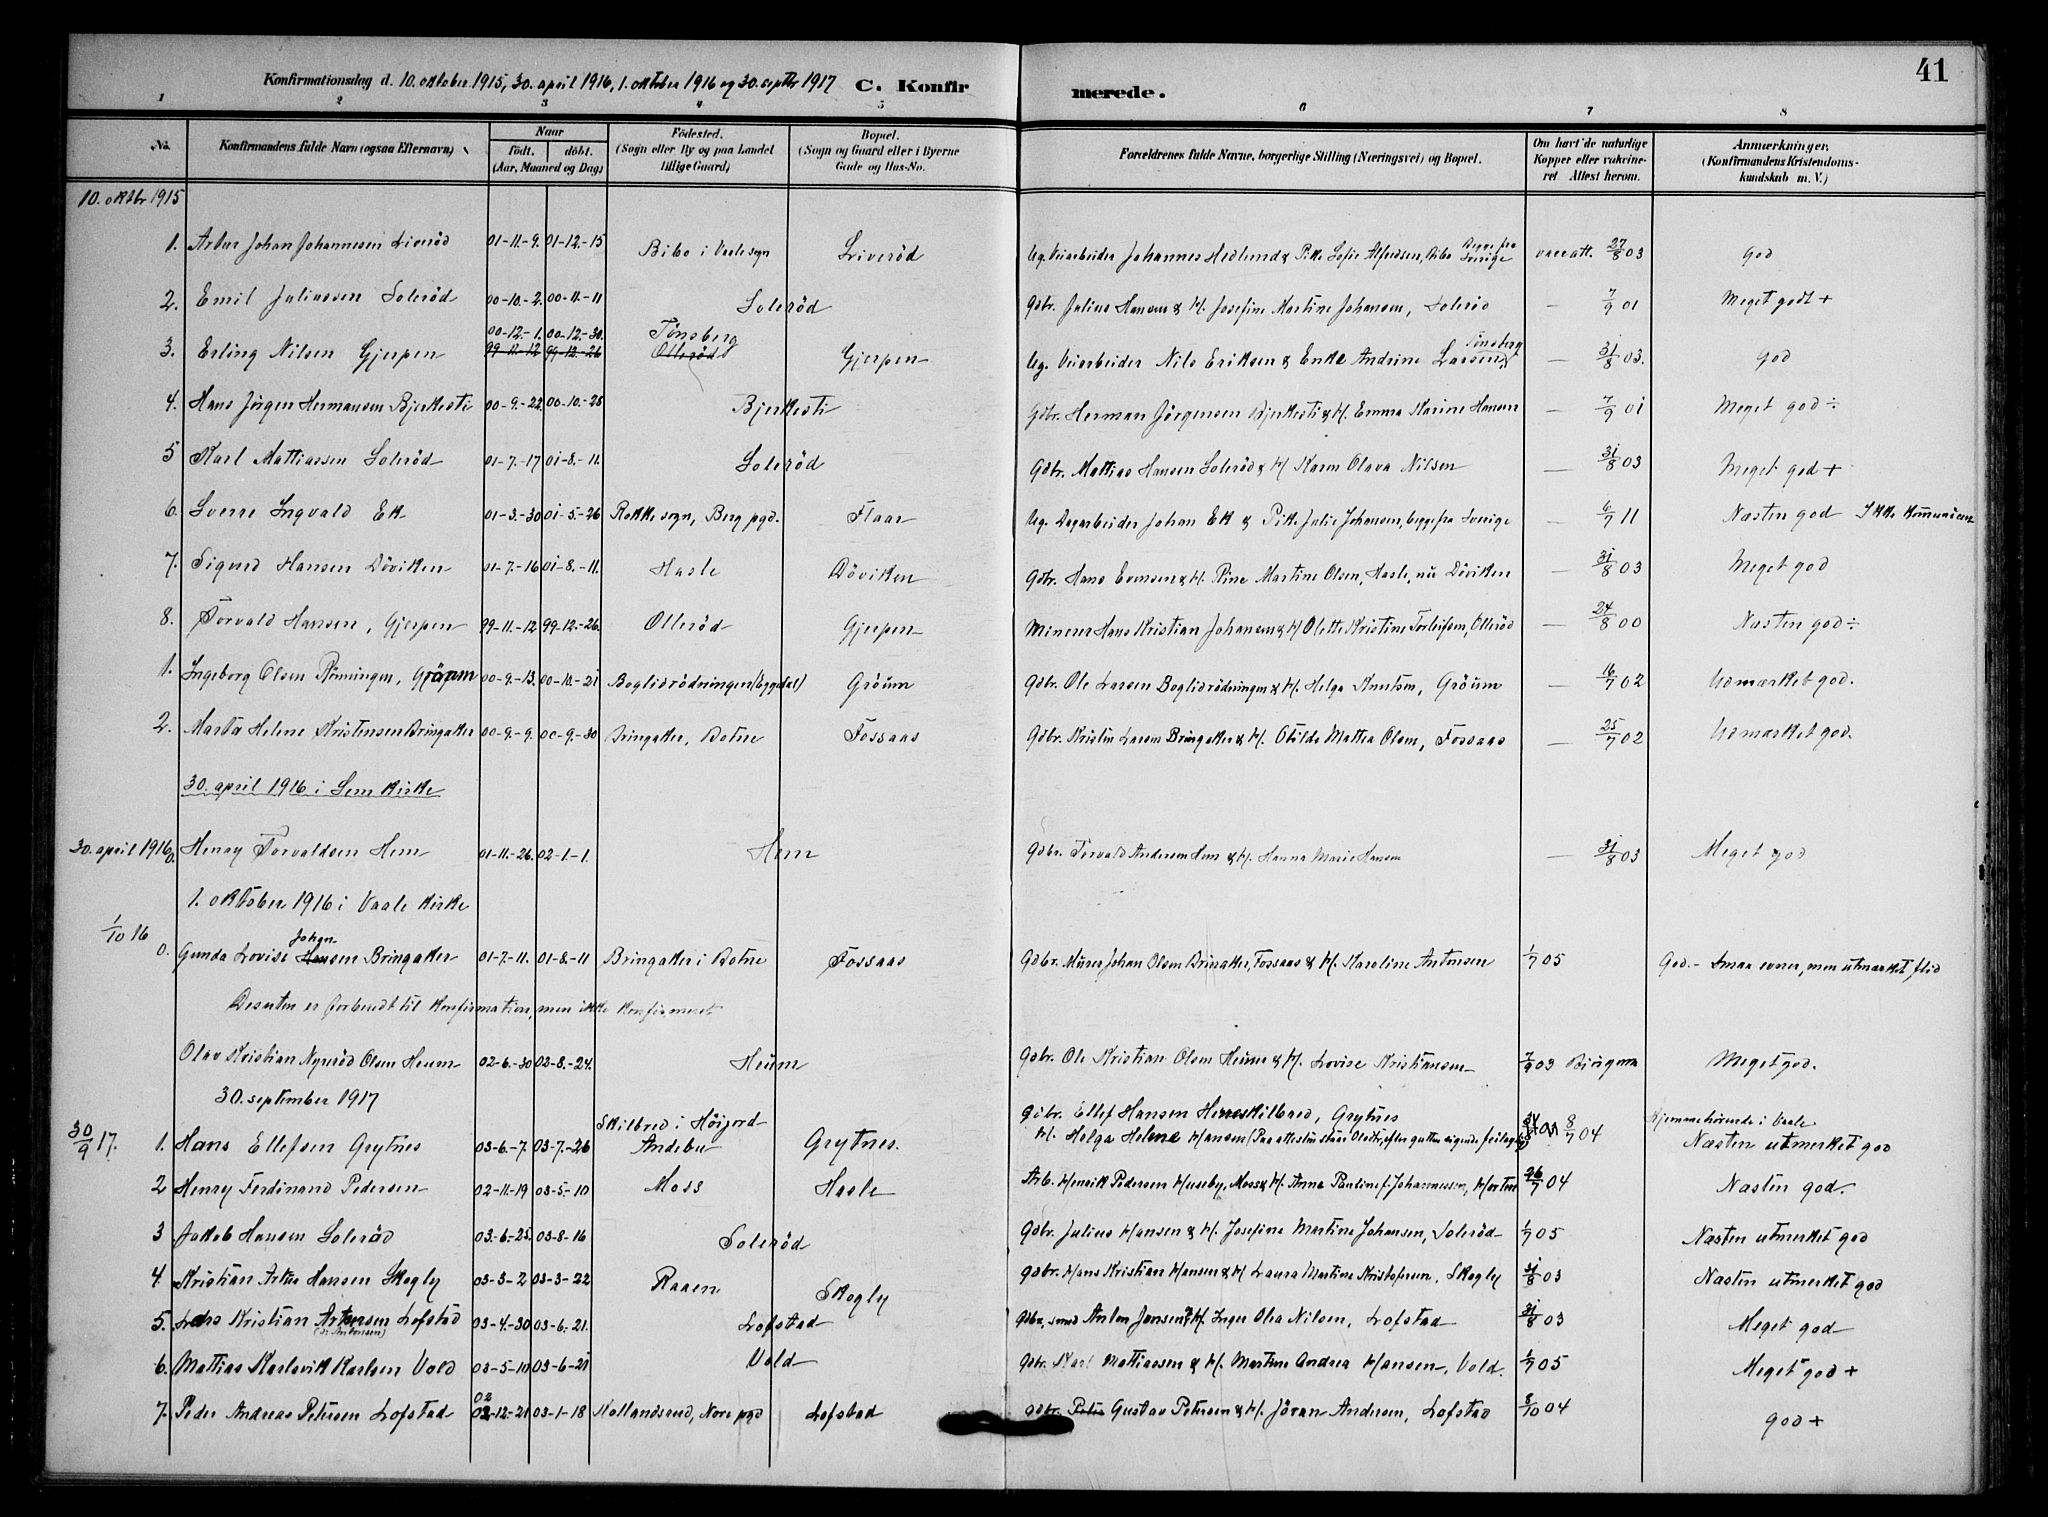 41
Konfirmationsdag d. 10. oktober 1915, 30. april 1916, 1. oktober 1916 og 30. septbr 1917 C. Konfirmerede.
1 2 3 4 5 6 7 8
No. Konfirmandens fulde Navn (ogsaa Efternavn) Naar født. døbt. (Aar, Maaned og Dag) Fødested. (Sogn eller By og paa Landet tillige Gaard) Bopæl. (Sogn og Gaard eller i Byerne Gade og Hus-No. Forældrenes fulde Navne, borgerlige Stilling (Næringsvei) og Bopæl. Om havt de naturlige Kopper eller vakcineret Attest herom. Anmærkninger. (Konfirmandens Kristendomskundskab m. V.)
10. oktbr 1915
1. Artur Johan Johannesen Liveröd 01-11-9. 01-12-15 Bibo i Vaale sogn Liveröd Ug. Veiarbeider Johannes Hedlund & Pike Sofie Alfredsen, Bibo Begge fra Sverige vacc att. 27/8 03 God
2. Emil Juliussen Soleröd 00-10-2. 00-11-11 Soleröd Gdbr. Julius Hansen & H. Josefine Martine Johansen, Soleröd — 7/9 01 Meget godt +
3. Erling Nilsen Gjerpen 00-12-1. 00-12-30. 99-11-12 99-12-26 Tønsberg Olleröd Gjerpen Ug. Veiarbeider Nils Eriksen & Enke Andrine Larsen, Tønsberg — 31/8 03. God
4. Hans Jörgen Hermansen Bjerkesti 00-9-22. 00-10-28 Bjerkesti Gdbr. Herman Jörgensen Bjerkesti & H. Emma Karine Hansen — 7/9 01 Meget god ÷
5 Karl Mattiassen Soleröd 01-7-17 01-8-11. Soleröd Gdbr. Mattias Hansen Soleröd & H. Karen Olava Nilsen — 31/8 03 Meget god +
6. Sverre Ingvald Ek 01-3-30 01-5-26 Rokke sogn, Berg pgd. Flaar Ug. Dagarbeider Johan Ek & Pike Julie Johansen, begge fra Sverige — 6/7 11 Næsten god Ikke
7. Sigurd Hansen Döviken 01-7-16 01-8-11. Hasle Döviken Gdbr. Hans Evensen & H. Rine Martine Olsen, Hasle, nu Döviken — 31/8 03 Meget god
8. Torvald Hansen, Gjerpen 99-11-12 99-12-26. Olleröd Gjerpen Minerer Hans Kristian Johansen & H. Olette Kristine Torleifsen, Olleröd — 24/8 00 Næsten god ÷
1. Ingeborg Olsen Rønningen, Gröum 00-9-13. 00-10-21 Boglidrödningen Gröum Gdbr. Ole Larsen Boglidrödningen & H. Helga Knutsen, Gröum — 16/7 02 Udmærket god.
2. Marta Helene Kristensen Bringaker 00-9-9. 00-9-30 Bringaker, Botne Fossaas Gdbr. Kristen Larsen Bringaker & H. Otilde Mattea Olsen, Fossaas — 25/7 02 Udmærket god.
30. april 1916 i Sem kirke
30. april 1916 0. Henry Torvaldsen Hem 01-11-26. 02-1-1. Hem Gdbr. Torvald Andersen Hem & H. Hanna Marie Hansen — 31/8 03 Meget god
1. oktober 1916 i Vaale kirke
1/10 16 0. Gunda Lovise Hansen Johansen Bringaker 01-7-11. 01-8-11 Bringaker i Botne Fossaas Gdbr. Murer Johan Olsen Bringaker, Fossaas & H. Karoline Antonsen 1/7 05 God. - Smaa evner, men utmærket flid
Desuten er forberedt til konfirmation, men ikke konfirmeret
Olav Kristian Nyeröd Olsen Heum 02-6-30 02-8-24. Heum Gdbr. Ole Kristian Olsen Heum & H. Lovise Kristiansen 7/9 03 Meget god.
30. september 1917
30/9 17. 1. Hans Ellefsen Grytnes 03-6-7. 03-7-26 Skilbred i Höijord Andebu Grytnes. Gdbr. Ellef Hansen Skilbred, Grytnes H. Helga Helene Hansen 8/7 04 Hjemmehörende i Vaale Næsten utmerket god
2 Henry Ferdinand Pedersen 02-11-19 03-5-10 Moss Hasle Arb. Henrik Pedersen Huseby, Moss & H. Anna Pauline f. Johannessen, Horten 26/7 04 Næsten god.
3 Jakob Hansen Soleröd 03-6-25. 03-8-16 Soleröd Gdbr. Julius Hansen & H. Josefine Martine Johansen, Soleröd 1/7 05 Næsten utmerket god
4. Kristian Artur Hansen Skogly 03-3-2 03-3-22 Raaen Skogly Gdbr. Hans Kristian Hansen & H. Laura Martine Kristofersen, Skogly 31/8 03 Næsten utmerket god
5. Lars Kristian Antonsen Lofstad 03-4-30 03-6-21. Lofstad Gdbr., smed Anton Jansen & H. Inger Olea Nilsen, Lofstad 31/8 03 Meget god
6. Mattias Karlsvik Karlsen Vold 03-5-10 03-6-21 Vold Gdbr. Karl Mattiassen & H. Martine Andrea Hansen, Vold. 1/7 05 Meget god +
7. Peder Andreas Petersen Lofstad 02-12-21 03-1-18 Hollandsrud, Nore pgd Lofstad Gdbr. Gustav Petersen & H. Jöran Andersen, Lofstad 8/10 04 God +